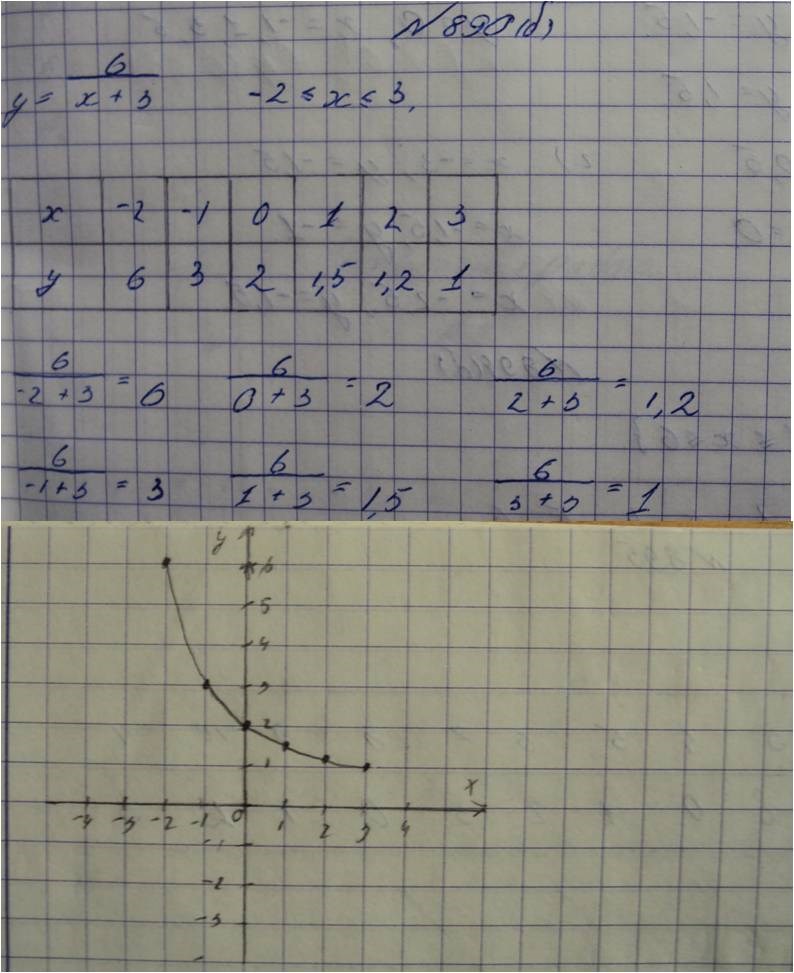 № 890 (б)
y = 6/(x + 3) -2 ≤ x ≤ 3,
x -2 -1 0 1 2 3
y 6 3 2 1,5 1,2 1
6/(-2 + 3) = 6 6/(0 + 3) = 2 6/(2 + 3) = 1,2
6/(-1 + 3) = 3 6/(1 + 3) = 1,5 6/(3 + 3) = 1
y
6
5
4
3
2
1
x
-4 -3 -2 -1 0 1 2 3 4
-1
-2
-3